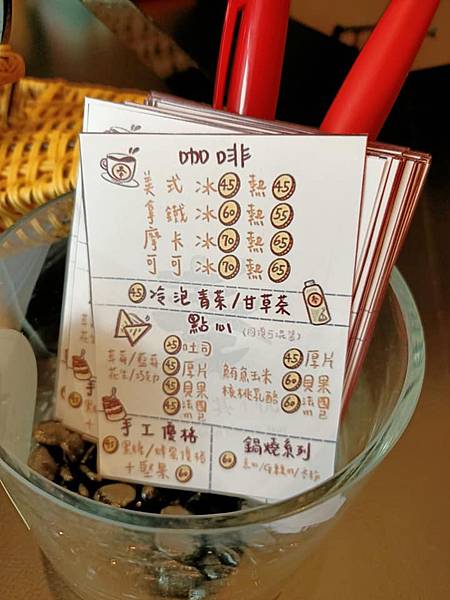 咖啡
美式 冰 45 熱 45
拿鐵 冰 60 熱 55
摩卡 冰 70 熱 65
可可 冰 70 熱 65
45 冷泡青茶/甘草茶
點心
草莓/藍莓
花生/巧克力
25 吐司
45 厚片
45 貝果
鮪魚玉米
核桃乳酪
45 厚片
60 貝果
60
手工優格
45 黑糖/蜂蜜優格
+堅果 60
鍋燒系列
60